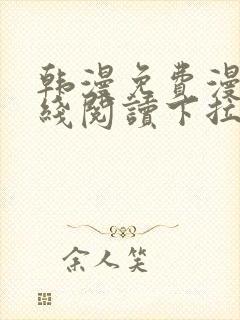 韩漫免費漫
綫閱讀下拉
余人笑